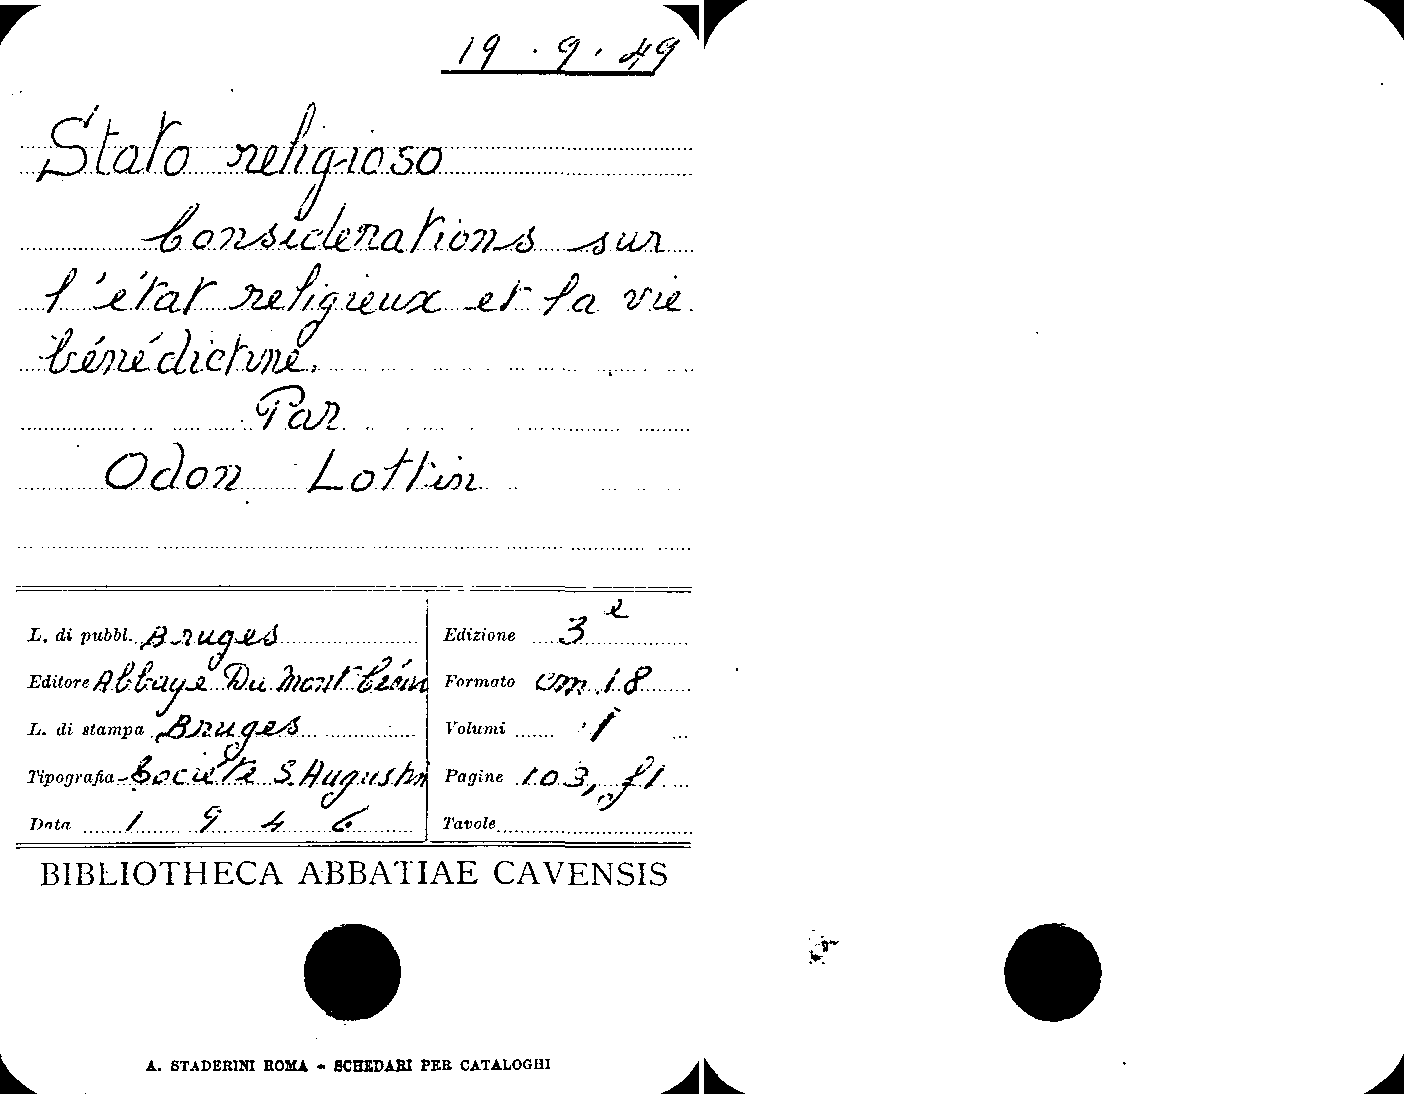 19 . 9 . 49
Stato religioso
Considerations sur
l'état religieux et la vie
bénédictine.
Par
Odon Lottin
L. di pubbl. Bruges
Editore Abbaye Du Mont César
L. di stampa Bruges
Tipografia Societé S. Augustin
Data 1 9 4 6
Edizione 3e
Formato cm. 18
Volumi 1
Pagine 103, f1
Tavole
BIBLIOTHECA ABBATIAE CAVENSIS
A. STADERINI ROMA - SCHEDARI PER CATALOGHI